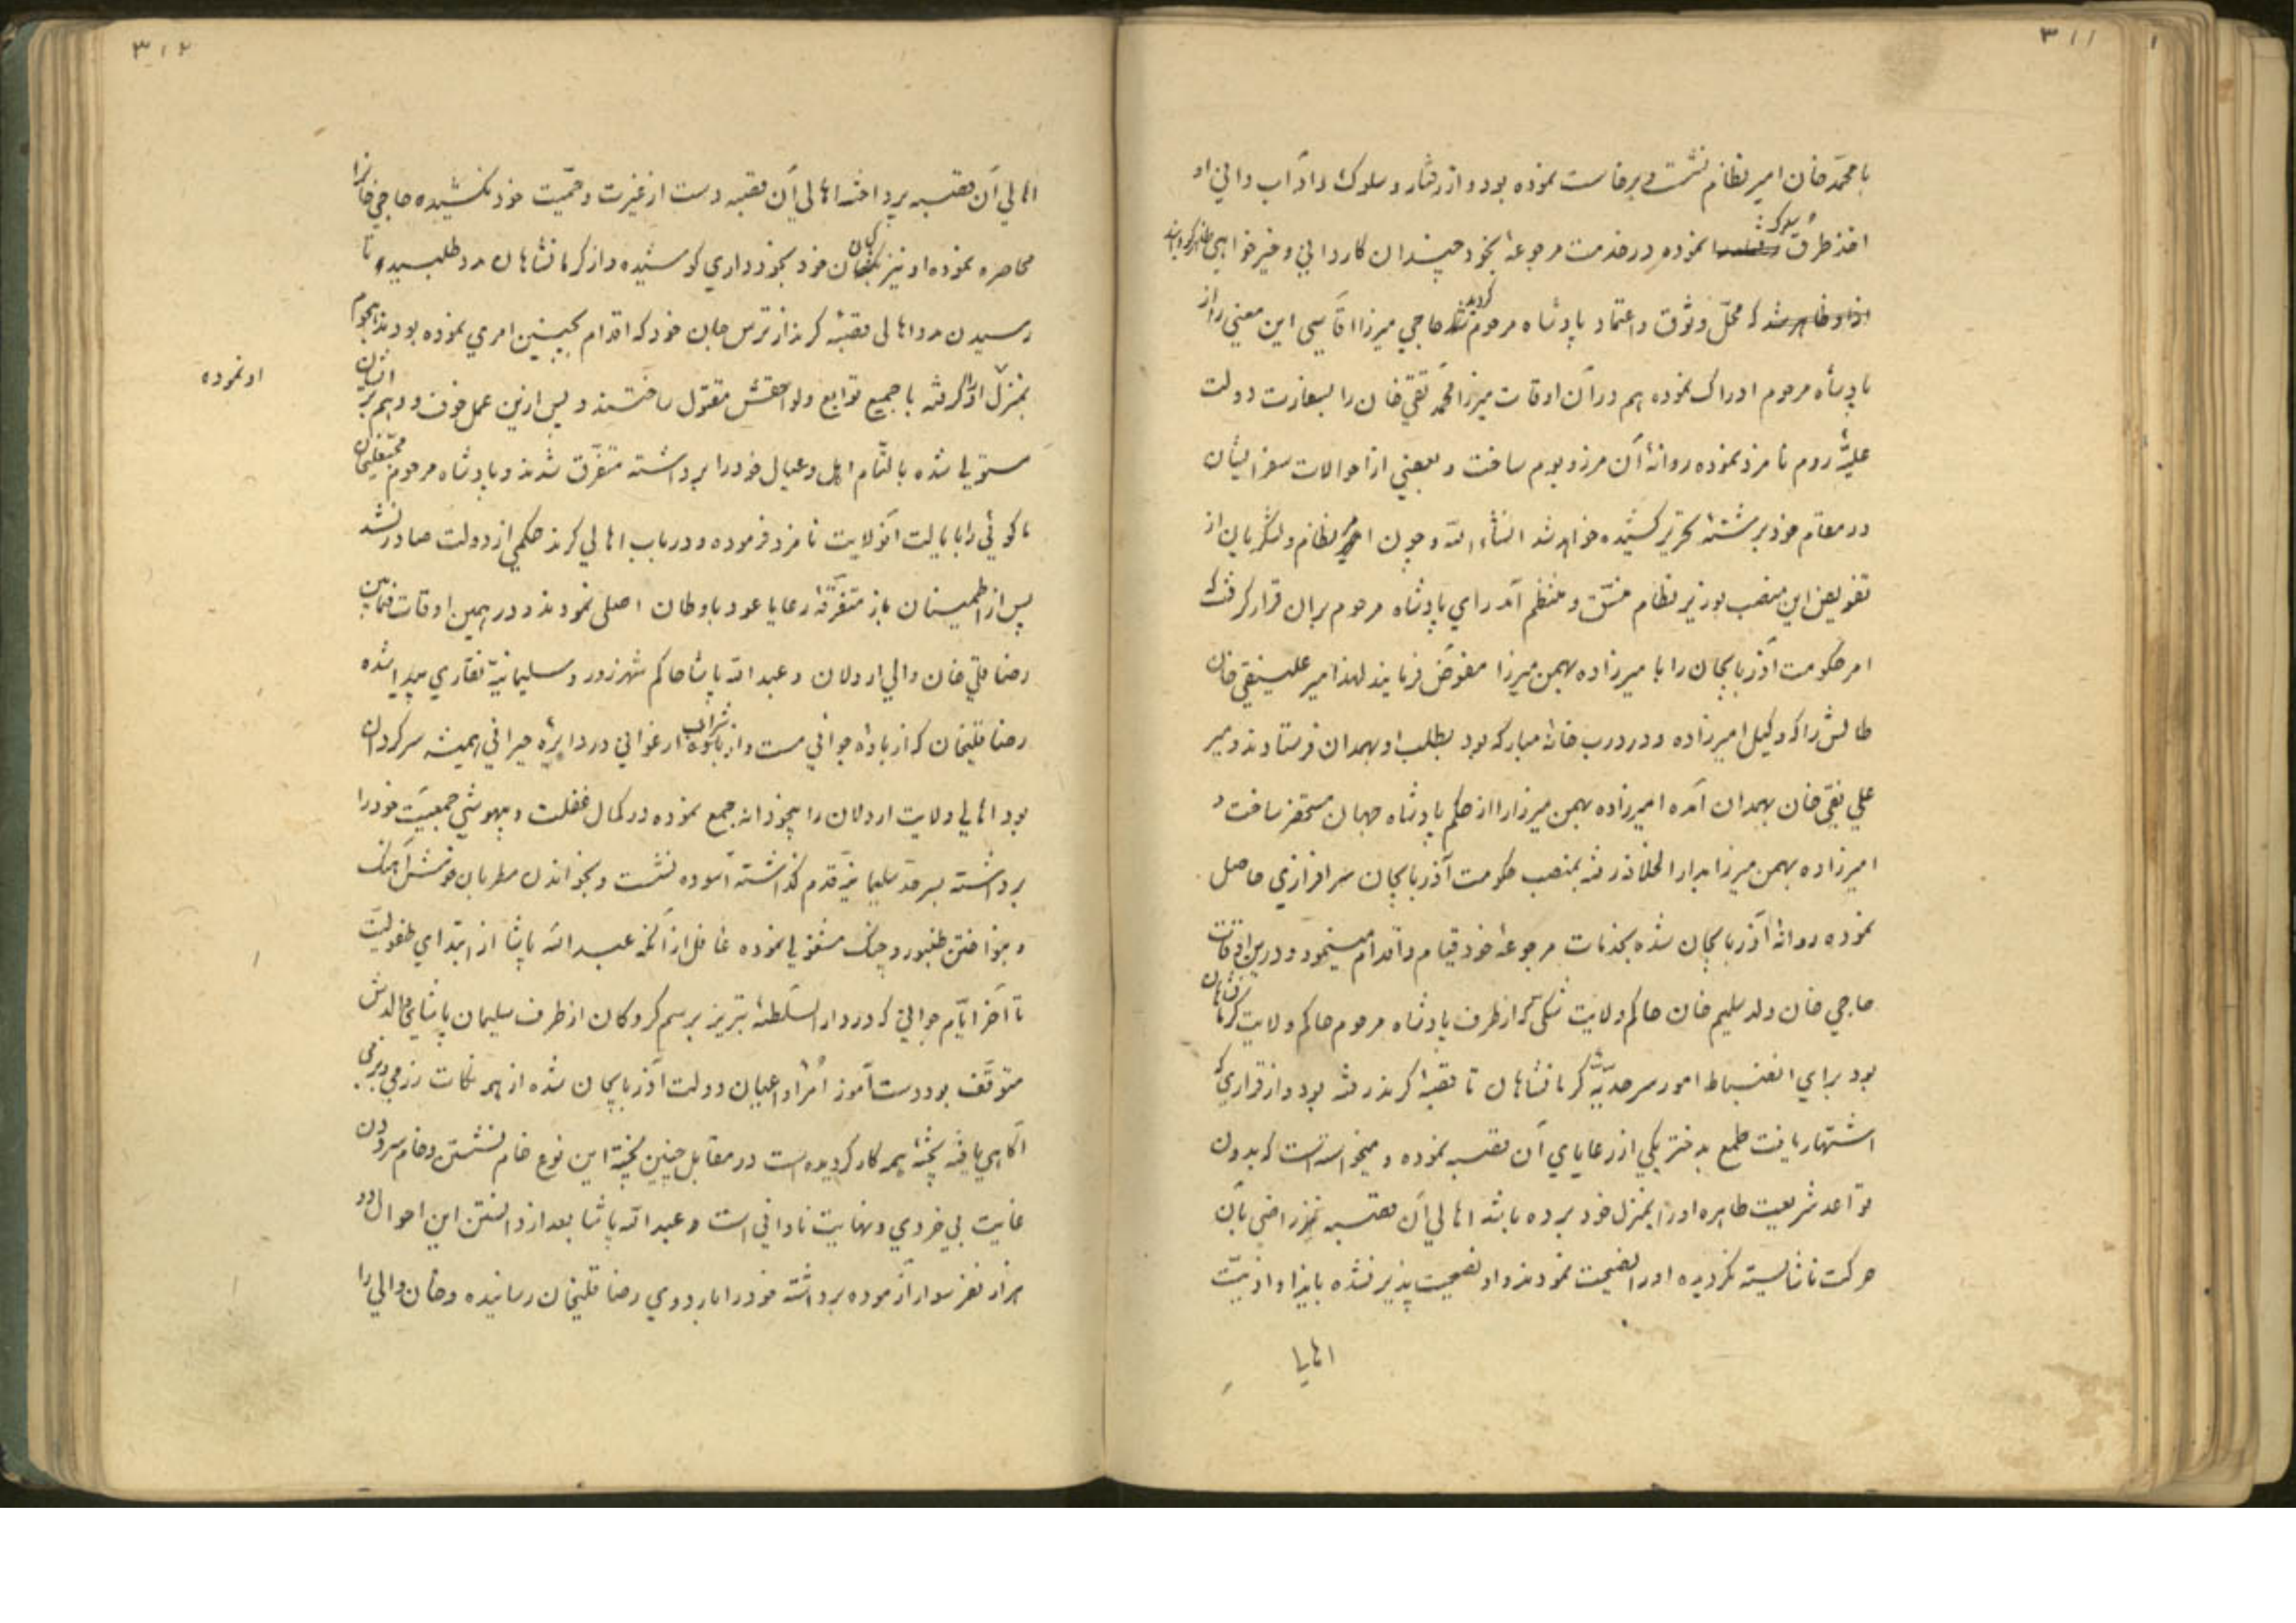 ۳۱۱
با محمّد خان امیر نظام نشست و برخاست نموده بود و از رفتار و سلوک و آداب دانی او
اخذ طرق سلوک نموده در خدمت مرجوعهٔ بخود چندان کاردانی و خیرخواهی
از او ظاهر شد که محلّ وثوق و اعتماد پادشاه مرحوم گردید حاجی میرزا آقاسی این معنی را از
پادشاه مرحوم ادراک نموده هم در آن اوقات میرزا محمّد تقی خان را بسفارت دولت
علیّهٔ روم نامزد نموده روانهٔ آن مرز و بوم ساخت و بعضی از احوالات سفر ایشان
در مقام خود برشتهٔ تحریر کشیده خواهد شد انشاء الله و چون امر نظام و لشگریان از
تفویض این منصب بوزیر نظام منسّق و منتظم آمد رای پادشاه مرحوم بران قرار گرفت که
امر حکومت آذربایجان را با میرزاده بهمن میرزا مفوّض فرمایند لهذا میر علینقی خان
طالش را که وکیل امیرزاده و در درب خانهٔ مبارکه بود بطلب او بهمدان فرستادند و میر
علی نقی خان بهمدان آمده امیرزاده بهمن میرزا را از حکم پادشاه جهان مستحضر ساخت و
امیرزاده بهمن میرزا بدار الخلافه رفته بمنصب حکومت آذربایجان سرافرازی حاصل
نموده روانهٔ آذربایجان شده بخدمات مرجوعهٔ خود قیام و اقدام مینمود و درین اوقات
حاجی خان ولد سلیم خان حاکم ولایت شکی که از طرف پادشاه مرحوم حاکم ولایت کرمانشاهان
بود برای انضباط امور سرحدیّهٔ کرمانشاهان تا قصبهٔ کرند رفته بود و از قراری که
اشتهار یافت طمع بدختر یکی از رعایای آن قصبه نموده و میخواسته است که بدون
قواعد شریعت طاهره او را بمنزل خود برده باشد اهالی آن قصبه نیز راضی بآن
حرکت ناشایسته نگردیده او را نصیحت نمودند و او نصیحت پذیر نشده بایذا و اذیّت
۳۱۲
اهالی آن قصبه پرداخت اهالی آن قصبه دست از غیرت و حمیّت خود نکشیده حاجی خانرا
محاصره نموده او نیز بکسان خود بخودداری کوشیده و از کرمانشاهان مدد طلبیده تا
رسیدن مدد اهالی قصبهٔ کرند از ترس جان خود که اقدام بچنین امری نموده بودند هجوم
بمنزل او نموده او را گرفته با جمیع توابع و لواحقش مقتول ساختند و پس ازین عمل خوف و وهم بر ایشان
مستولی شده بالتّمام اهل و عیال خود را برداشته متفرّق شدند و پادشاه مرحوم محبعلیخان
ماکوئی را بایالت آنولایت نامزد فرموده و در باب اهالی کرند حکمی از دولت صادر نشد
پس از اطمینان باز متفرّقهٔ رعایا عود باوطان اصلی نمودند و در همین اوقات فیمابین
رضا قلی خان والی اردلان و عبد الله پاشا حاکم شهرزور و سلیمانیّه نقاری پیدا شده
رضا قلیخان که از بادهٔ جوانی مست و از شراب ارغوانی در دایرهٔ حیرانی همیشه سرگردان
بود اهالی ولایت اردلان را بیخودانه جمع نموده در کمال غفلت و بیهوشی جمعیّت خود را
برداشته بسرحد سلیمانیّه قدم گذاشته آسوده نشست و بخواندن مطربان خوش آهنگ
و بنواختن طنبور و چنگ مشغولی نموده غافل از آنکه عبد الله پاشا از ابتدای طفولیّت
تا آخر ایّام جوانی که در دار السّلطنهٔ تبریز برسم گروگان از طرف سلیمان پاشای والدش
متوقّف بود دست آموز امرا و اعیان دولت آذربایجان شده از همه نکات رزمی و بزمی
آگاهی یافته پختهٔ همه کار گردیده است در مقابل چنین پختهٔ این نوع خام نشستن و خام سرودن
غایت بی خردی و نهایت نادانی است و عبد الله پاشا بعد از دانستن این احوال دو
هزار نفر سوار آزموده برداشته خود را باردوی رضا قلیخان رسانیده و خان والی را